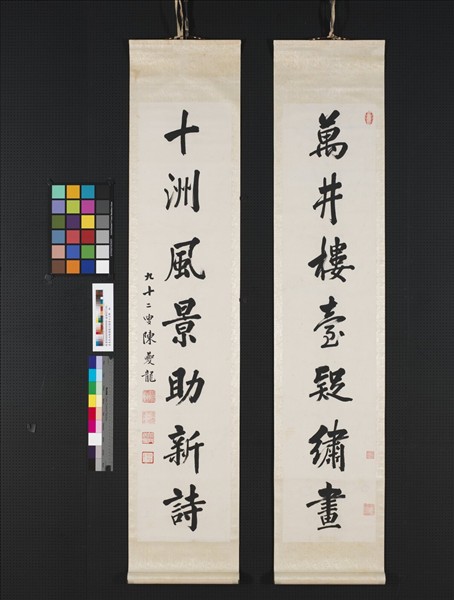 萬井樓臺疑繡畫
十洲風景助新詩
九十二叟陳夔龍